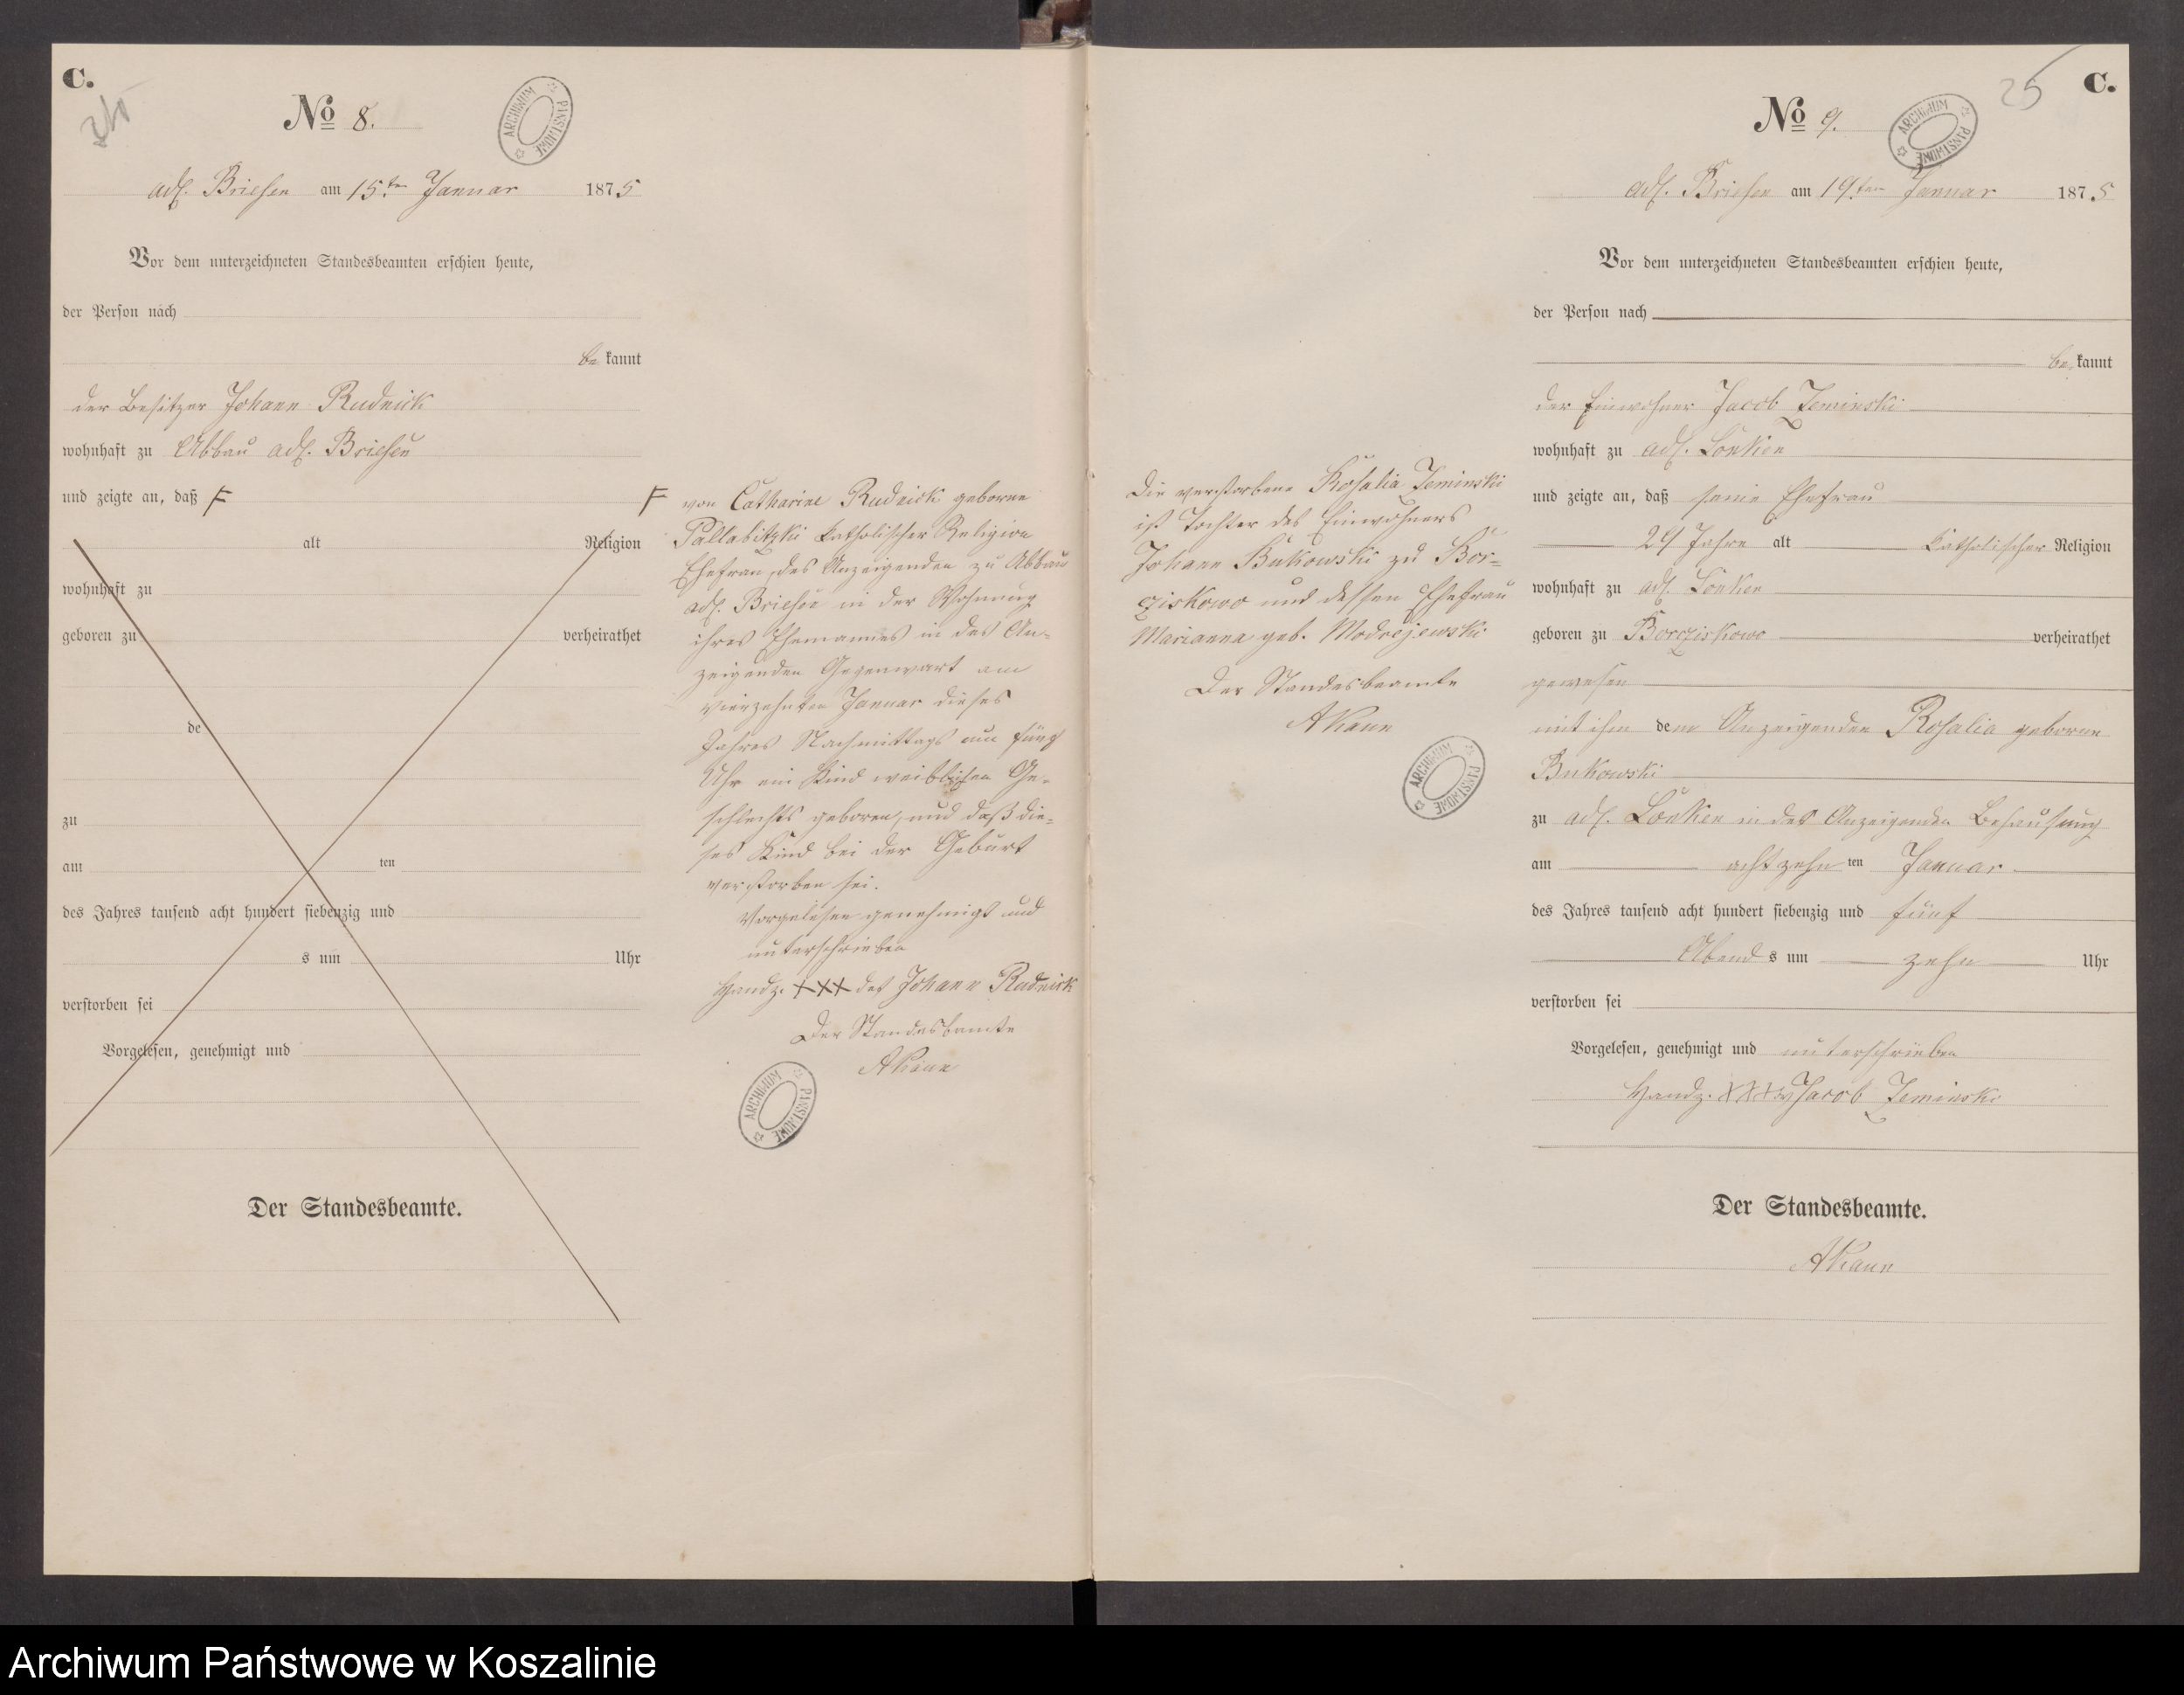 C.
No 8.
ARCHIWUM PAŃSTWOWE
adl. Briesen am 15ten Januar 1875
Vor dem unterzeichneten Standesbeamten erschien heute,
der Person nach
be kannt
der Besitzer Johann Rudnick
wohnhaft zu Abbau adl. Briesen
und zeigte an, daß F
alt Religion
wohnhaft zu
geboren zu verheirathet
de
zu
am ten
des Jahres tausend acht hundert siebenzig und
s um Uhr
verstorben sei
Vorgelesen, genehmigt und
Der Standesbeamte.
F von Catharine Rudnick geborne
Pallabitzki katholischer Religion
Ehefrau des Anzeigenden zu Abbau
adl. Briesen in der Wohnung
ihres Ehemannes in des An-
zeigenden Gegenwart am
vierzehnten Januar dieses
Jahres Nachmittags um fünf
Uhr ein Kind weiblichen Ge-
schlechts geboren, und daß die-
ses Kind bei der Geburt
verstorben sei.
Vorgelesen genehmigt und
unterschrieben
Handz. +++ des Johann Rudnick
Der Standesbeamte
AKaun
ARCHIWUM PAŃSTWOWE
C.
25
No 9.
ARCHIWUM PAŃSTWOWE
adl. Briesen am 19ten Januar 1875
Vor dem unterzeichneten Standesbeamten erschien heute,
der Person nach
be kannt
der Einwohner Jacob Zeminski
wohnhaft zu adl. Lonken
und zeigte an, daß seine Ehefrau
29 Jahre alt katholischer Religion
wohnhaft zu adl. Lonken
geboren zu Borcziskowo verheirathet
gewesen
mit ihm dem Anzeigenden Rosalia geborne
Bukowski
zu adl. Lonken in des Anzeigenden Behausung
am achtzehn ten Januar
des Jahres tausend acht hundert siebenzig und fünf
Abend s um zehn Uhr
verstorben sei
Vorgelesen, genehmigt und unterschrieben
Handz. +++ Jacob Zeminski
Der Standesbeamte.
AKaun
Die verstorbene Rosalia Zeminski
ist Tochter des Einwohners
Johann Bukowski zu Bor-
cziskowo und dessen Ehefrau
Marianna geb. Modrejewski
Der Standesbeamte
AKaun
ARCHIWUM PAŃSTWOWE
Archiwum Państwowe w Koszalinie